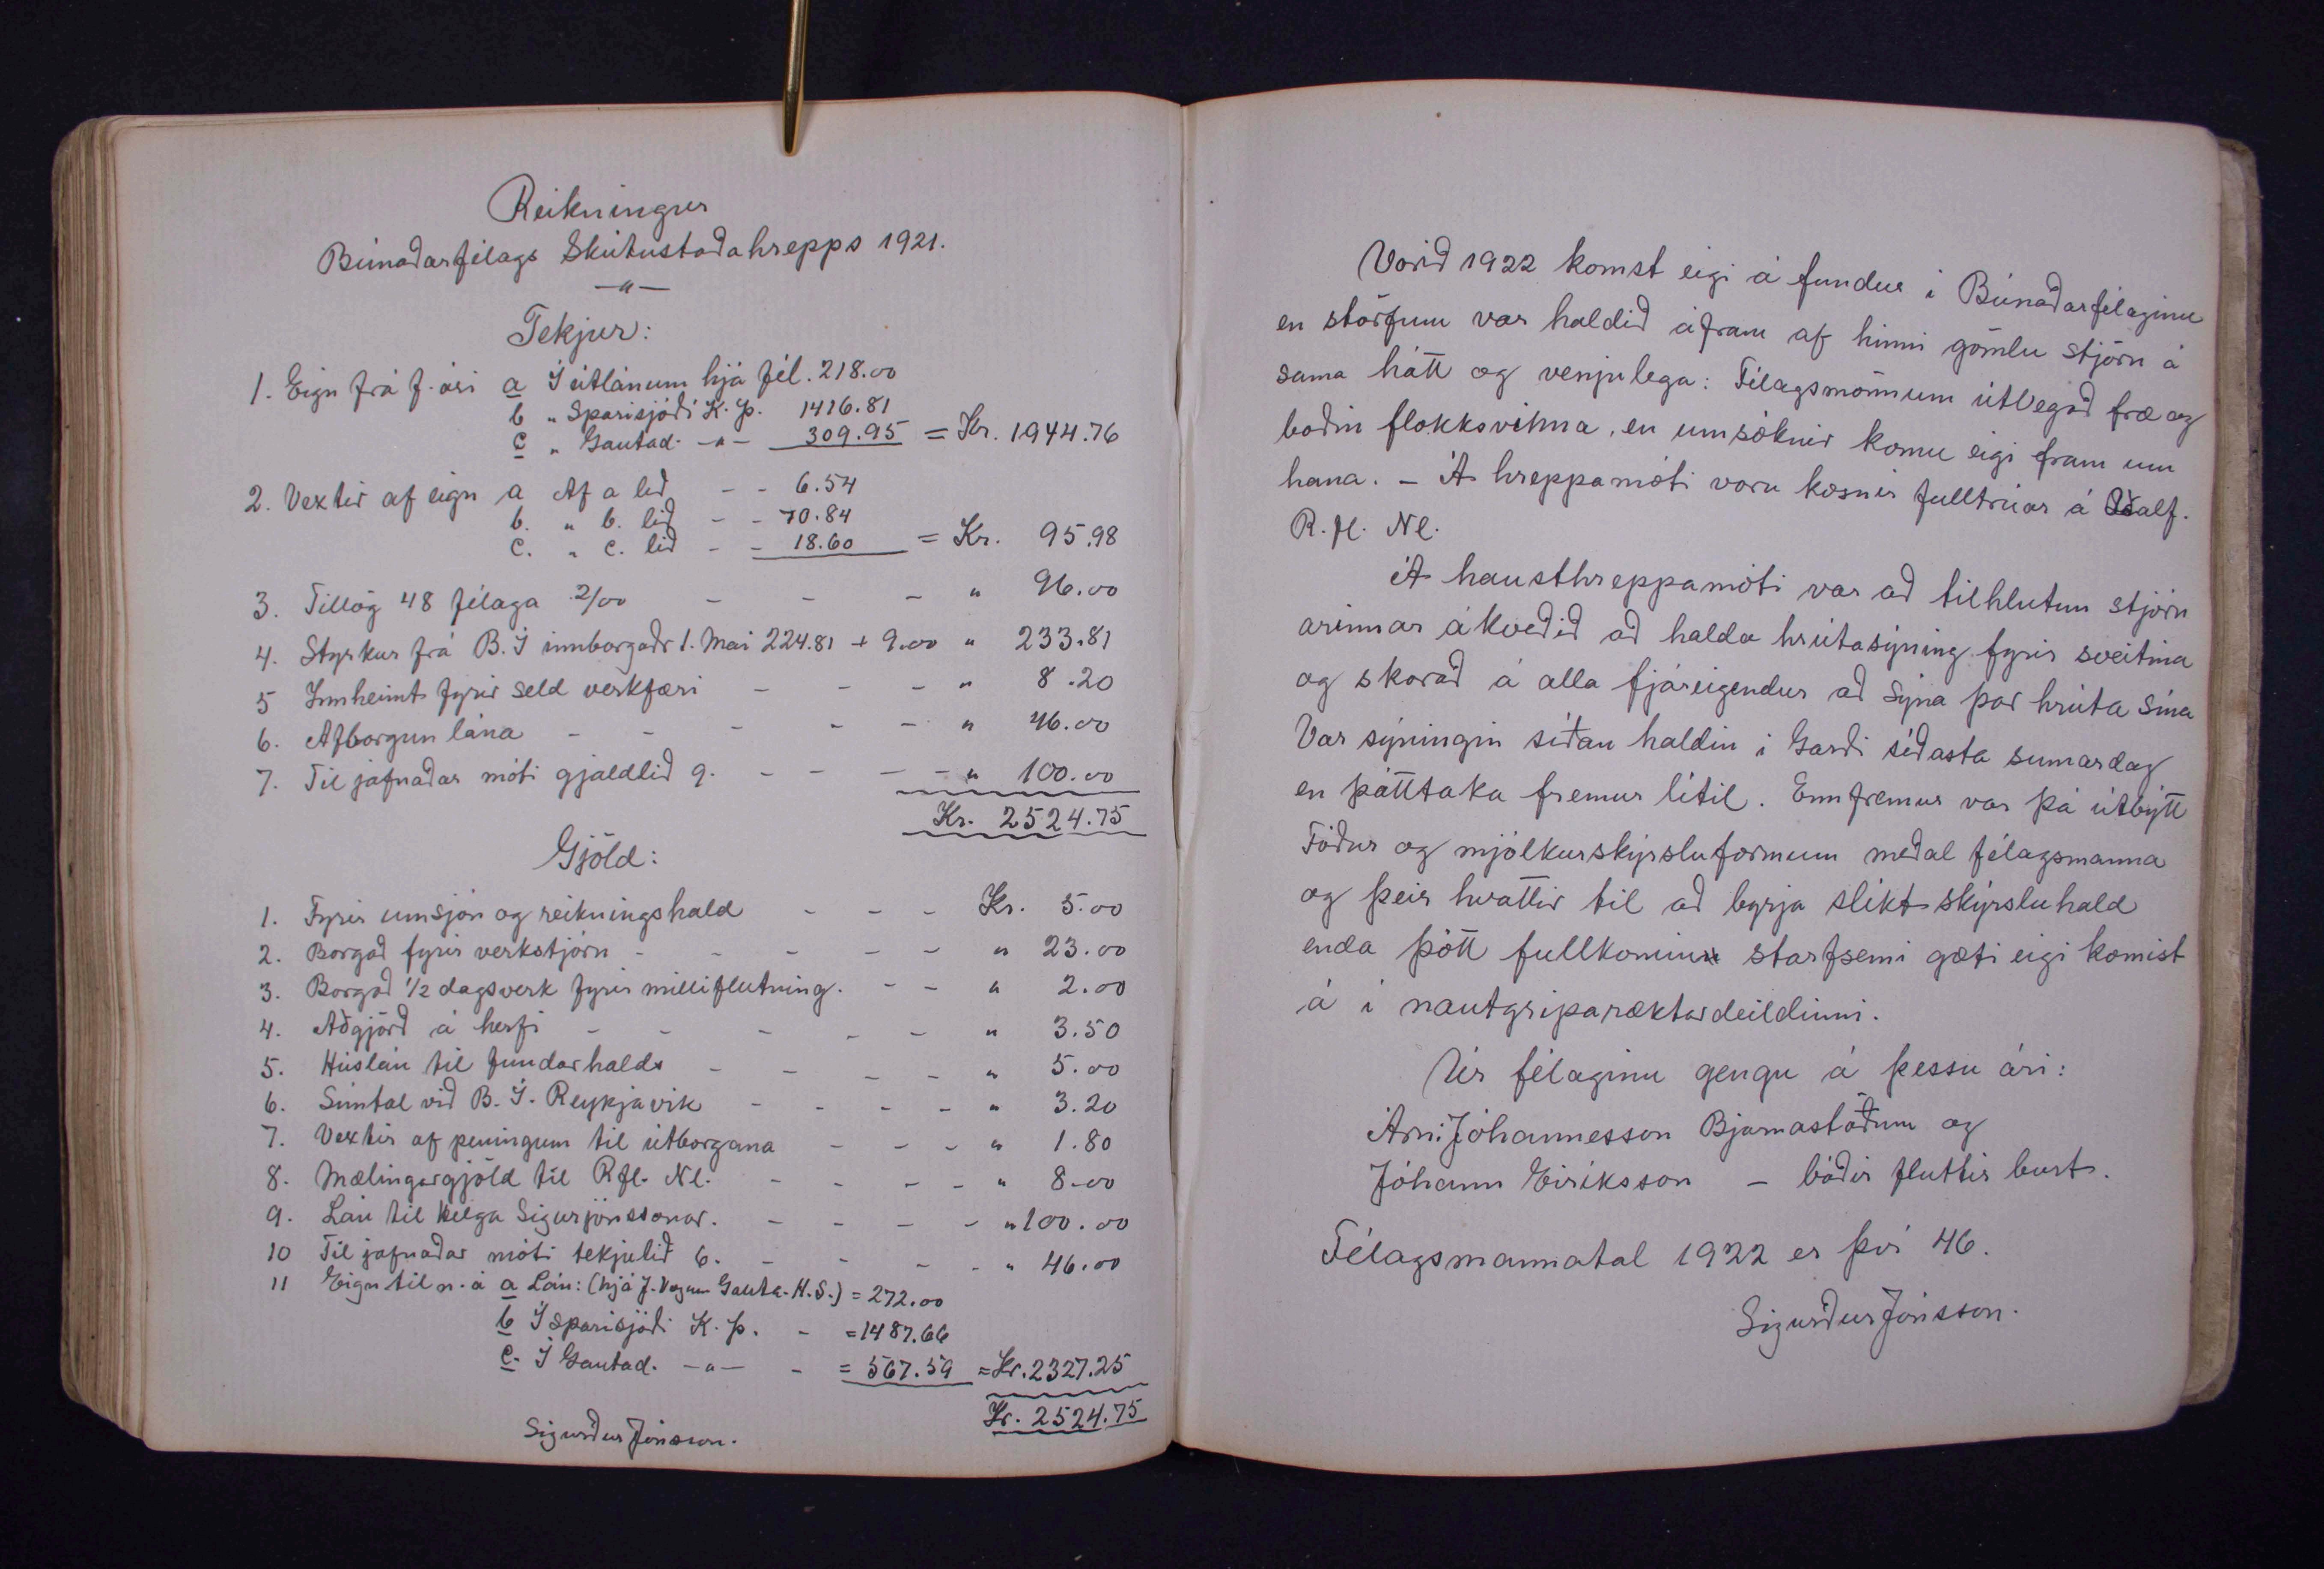 Reikningur
Búnaðarfélags Skútustaðahrepps 1921.
—"—
Tekjur:
1. Eign frá f. ári a Í útlánum hjá fél. 218.00
b " Sparisjóði K. Þ. 1416.81
c " Gautad. —"— 309.95 = Kr. 1944.76
2. Vextir af eign a Af a lið - - 6.54
b. " b. lið - - 70.84
c. " c. lið - - 18.60 = Kr. 95.98
3. Tillög 48 félaga 2/00 - - - " 96.00
4. Styrkur frá B. Í innborgaðr 1. Maí 224.81 + 9.00 " 233.81
5 Innheimt fyrir seld verkfæri - - - " 8.20
6. Afborgun lána - - - - - " 46.00
7. Til jafnaðar móti gjaldlið 9. - - - - " 100.00
Kr. 2524.75
Gjöld:
1. Fyrir umsjón og reikningshald - - - Kr. 5.00
2. Borgað fyrir verkstjórn - - - - - " 23.00
3. Borgað 1/2 dagsverk fyrir milliflutning. - - " 2.00
4. Aðgjörð á herfi - - - - - " 3.50
5. Húslán til fundarhalds - - - - " 5.00
6. Símtal við B. Í. Reykjavík - - - - " 3.20
7. Vextir af peningum til útborgana - - - " 1.80
8. Mælingargjöld til Rfl. Nl. - - - - " 8.00
9. Lán til Helga Sigurjónssonar. - - - - " 100.00
10 Til jafnaðar móti tekjulið 6. - - - - " 46.00
11 Eign til n. á a Lán: (hjá J. Vogum Gauta. H. S.) = 272.00
b Í sparisjóði K. Þ. - = 1487.66
c. Í Gautad. —"— - = 567.59 = Kr. 2327.25
Kr. 2524.75
Sigurður Jónsson.
Vorið 1922 komst eigi á fundur í Búnaðarfélaginu
en störfum var haldið áfram af hinni gömlu stjórn á
sama hátt og venjulega: Félagsmönnum útvegað fræ og
boðin flokksvinna, en umsóknir komu eigi fram um
hana. - Á hreppamóti voru kosnir fulltrúar á alf.
R. fl. Nl.
Á hausthreppamóti var að tilhlutun stjórn
arinnar ákveðið að halda hrútasýning fyrir sveitina
og skorað á alla fjáreigendur að sýna þar hrúta sína
Var sýningin síðan haldin í Garði síðasta sumardag
en þátttaka fremur lítil. Ennfremur var þá útbýtt
Fóður og mjólkurskýrsluformum meðal félagsmanna
og þeir hvattir til að byrja slíkt skýrsluhald
enda þótt fullkomin starfsemi gæti eigi komist
á í nautgriparæktardeildinni.
Úr félaginu gengu á þessu ári:
Árni Jóhannesson Bjarnastöðum og
Jóhann Eiríksson - báðir fluttir burt.
Félagsmannatal 1922 er því 46.
Sigurður Jónsson.